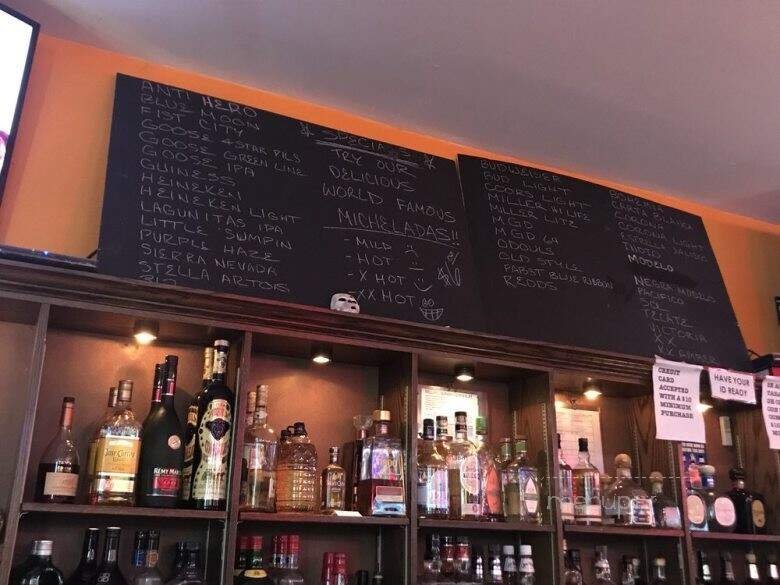 ANTI HERO
BLUE MOON
FIST CITY
GOOSE 4STAR PILS
GOOSE GREEN LINE
GOOSE IPA
GUINESS
HEINEKEN
HEINEKEN LIGHT
LAGUNITAS IPA
LITTLE SUMPIN
PURPLE HAZE
SIERRA NEVADA
STELLA ARTOIS
312
SPECIALS
TRY OUR
DELICIOUS
WORLD FAMOUS
MICHELADAS!!
- MILD
- HOT
- X HOT
- XX HOT
BUDWEISER
BUD LIGHT
COORS LIGHT
MILLER HI LIFE
MILLER LITE
MGD
MGD 64
ODOULS
OLD STYLE
PABST BLUE RIBBON
REDDS
BOHEMIA
CORONA
CORONA LIGHT
MODELO
NEGRA MODELO
PACIFICO
SOL
TECATE
VICTORIA
XX
XX AMBER
CREDIT
CARD
ACCEPTED
WITH A
$10
MINIMUM
PURCHASE
HAVE YOUR
ID READY
REMY MARTIN
menupix